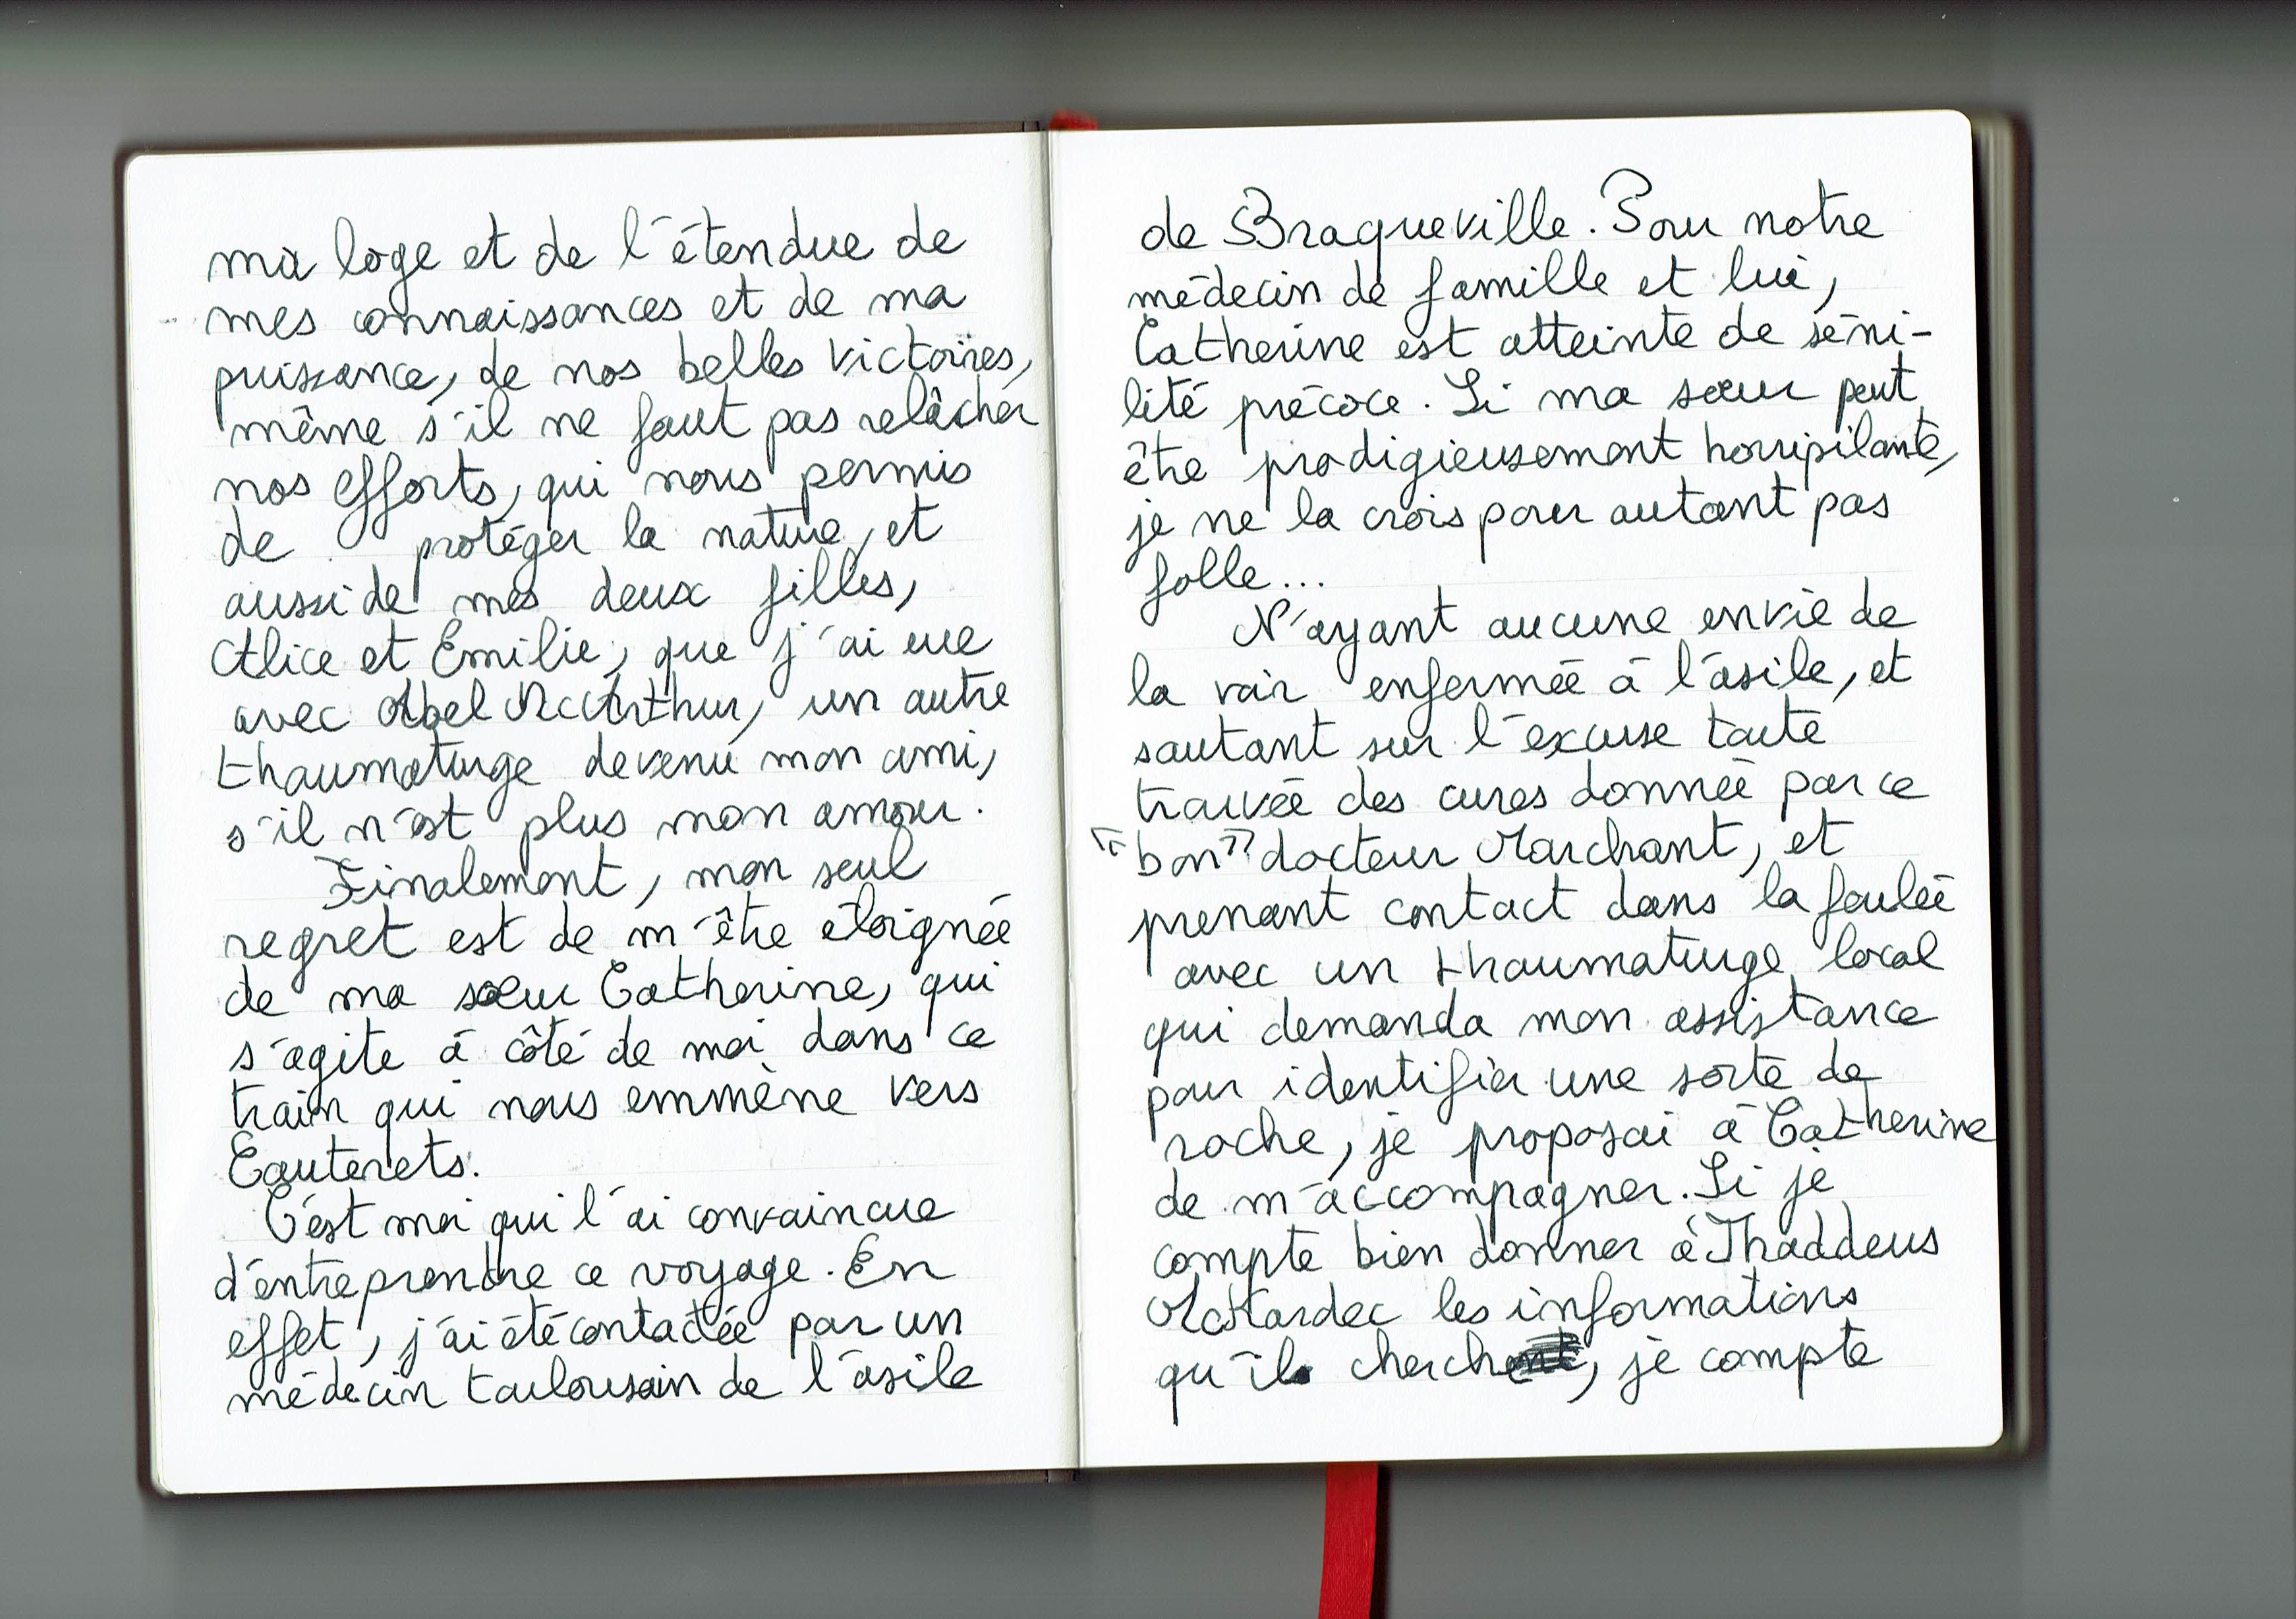 ma loge et de l'étendue de
mes connaissances et de ma
puissance, de nos belles victoires,
même s'il ne faut pas relâcher
nos efforts, qui nous permis
de protéger la nature, et
aussi de mes deux filles,
Alice et Émilie, que j'ai eue
avec Abel McArthur, un autre
thaumaturge devenu mon ami,
s'il n'est plus mon amour.
Finalement, mon seul
regret est de m'être éloignée
de ma sœur Catherine, qui
s'agite à côté de moi dans ce
train qui nous emmène vers
Cauterets.
C'est moi qui l'ai convaincue
d'entreprendre ce voyage. En
effet, j'ai été contactée par un
médecin toulousain de l'asile
de Braqueville. Pour notre
médecin de famille et lui,
Catherine est atteinte de séni-
lité précoce. Si ma sœur peut
être prodigieusement horripilante,
je ne la crois pour autant pas
folle...
N'ayant aucune envie de
la voir enfermée à l'asile, et
sautant sur l'excuse toute
trouvée des cures donnée par ce
"bon" docteur Marchant, et
prenant contact dans la foulée
avec un thaumaturge local
qui demanda mon assistance
pour identifier une sorte de
roche, je proposai à Catherine
de m'accompagner. Si je
compte bien donner à Thaddeus
McKardec les informations
qu'il cherche, je compte